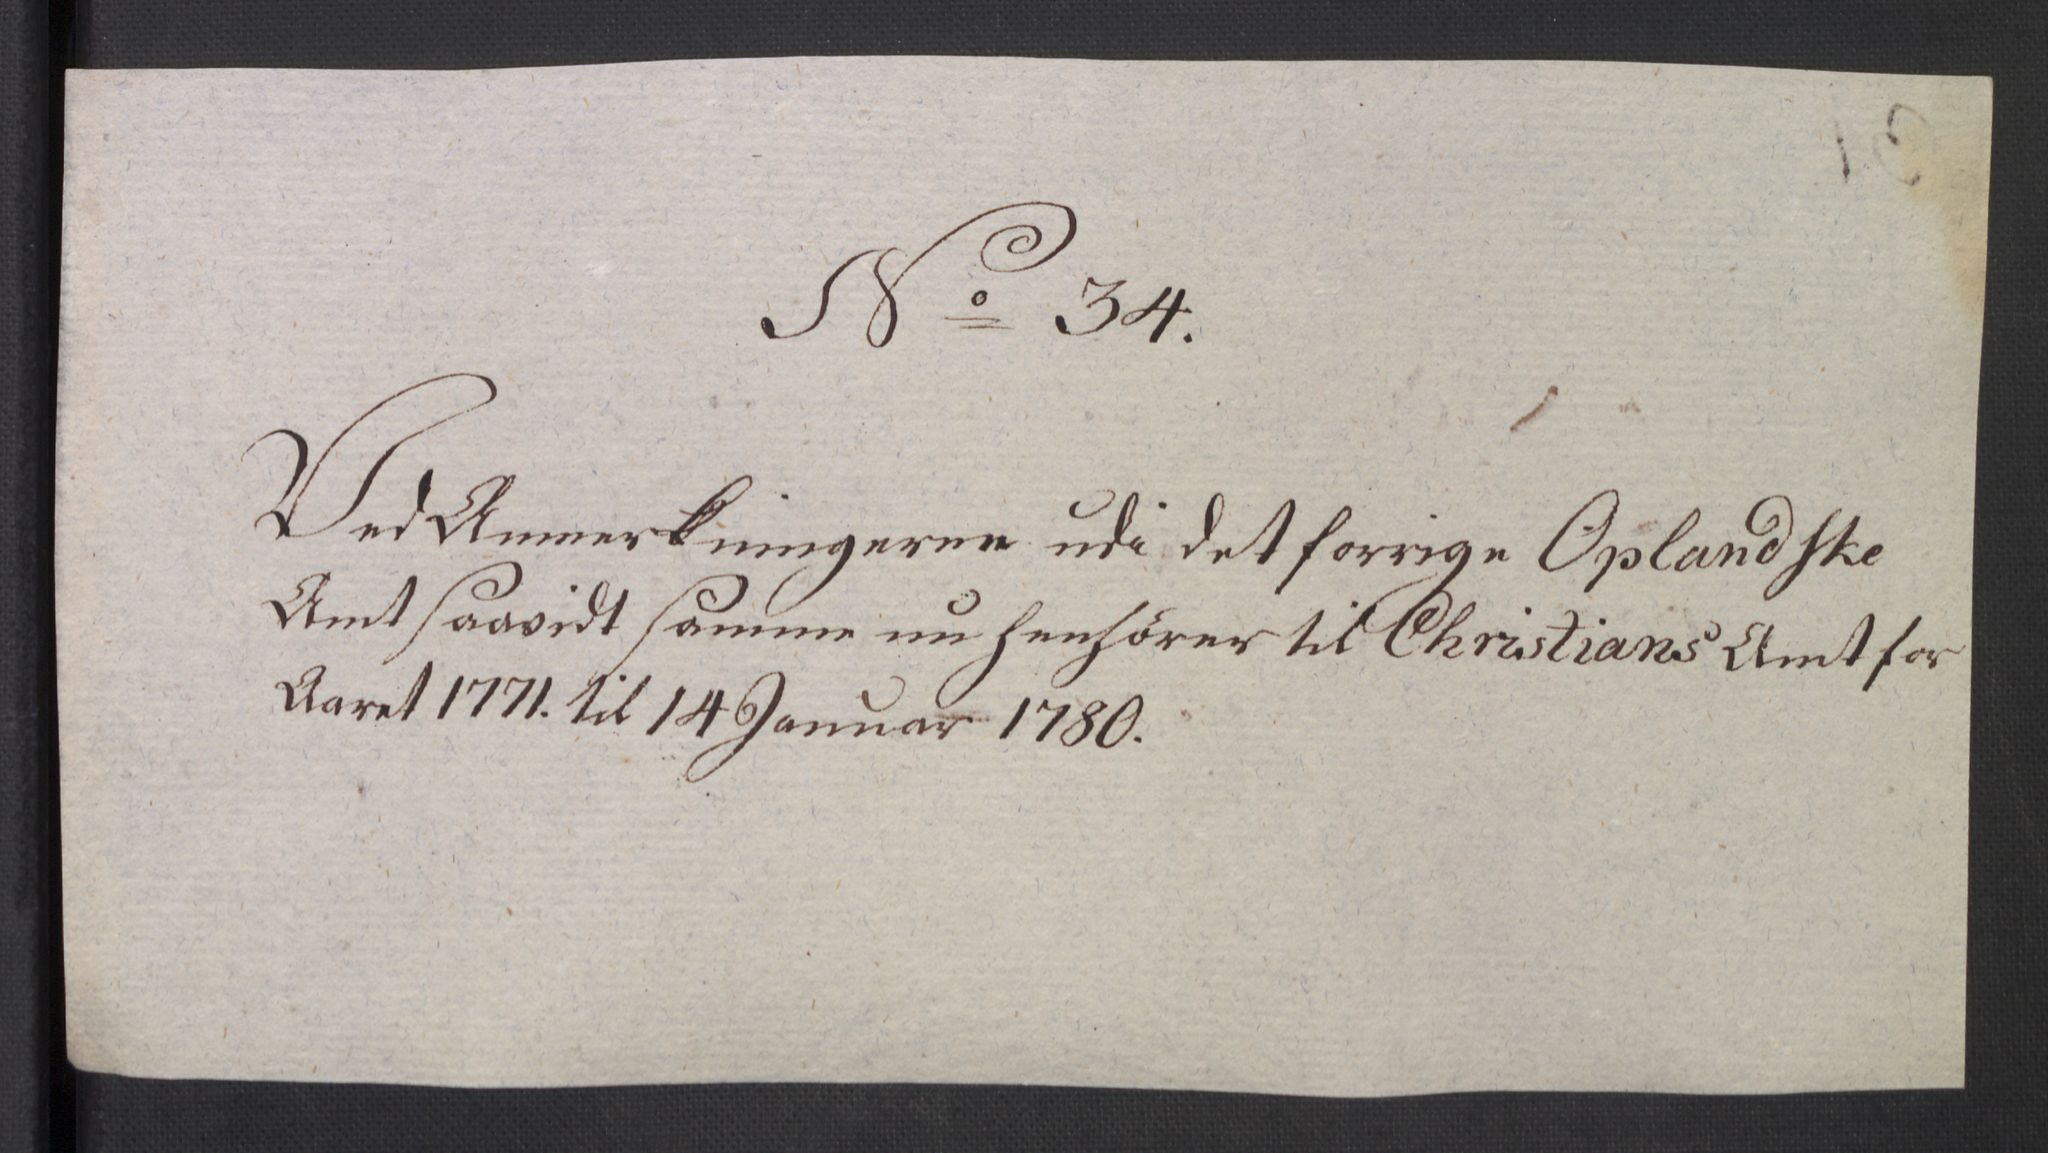 No 34.
Ved Anmerkningerne udi det forrige Oplandske
Amt saavidt samme nu henhörer til Christians Amt for
Aaret 1771. til 14 Januar 1780.